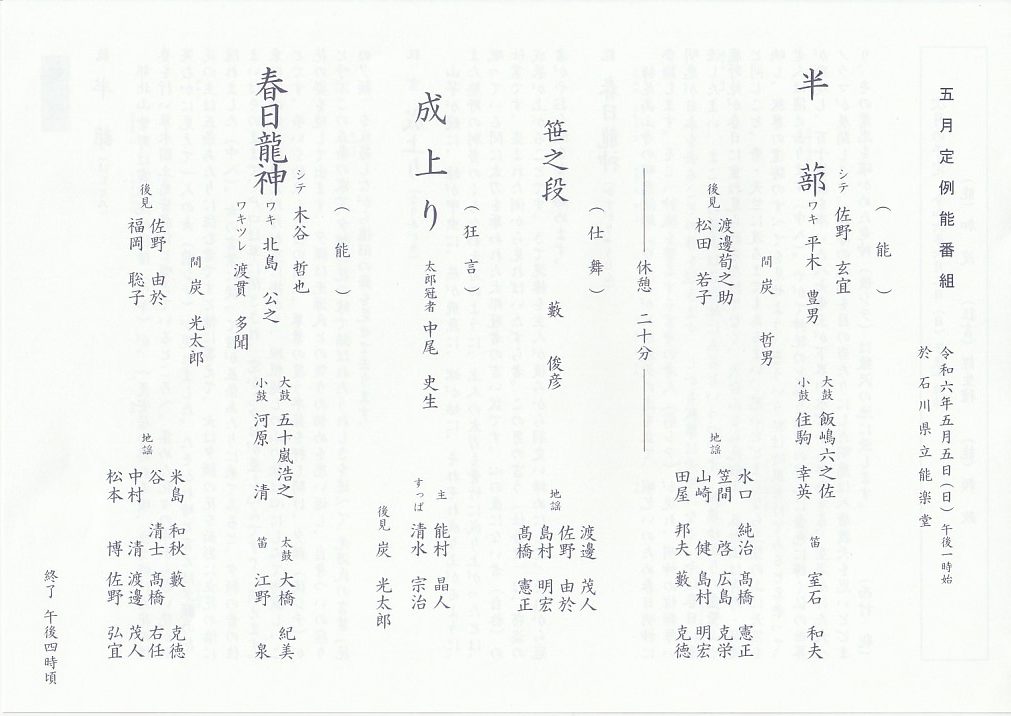 五月定例能番組
令和六年五月五日(日)午後一時始
於 石川県立能楽堂
(能)
半蔀
シテ 佐野 玄宜
ワキ 平木 豊男
間 炭 哲男
大鼓 飯嶋六之佐
小鼓 住駒 幸英
笛 室石 和夫
後見 渡邊荀之助
松田 若子
地謡
水口 純治 髙橋 憲正
笠間 啓 広島 克栄
山崎 健 島村 明宏
田屋 邦夫 藪 克徳
休憩 二十分
(仕舞)
笹之段
藪 俊彦
地謡
渡邊 茂人
佐野 由於
島村 明宏
髙橋 憲正
(狂言)
成上り
太郎冠者 中尾 史生
主 能村 晶人
すっぱ 清水 宗治
後見 炭 光太郎
(能)
春日龍神
シテ 木谷 哲也
ワキ 北島 公之
ワキツレ 渡貫 多聞
間 炭 光太郎
大鼓 五十嵐浩之
小鼓 河原 清
太鼓 大橋 紀美
笛 江野 泉
後見 佐野 由於
福岡 聡子
地謡
米島 和秋 藪 克徳
谷 清士 髙橋 右任
中村 清 渡邊 茂人
松本 博 佐野 弘宜
終了 午後四時頃